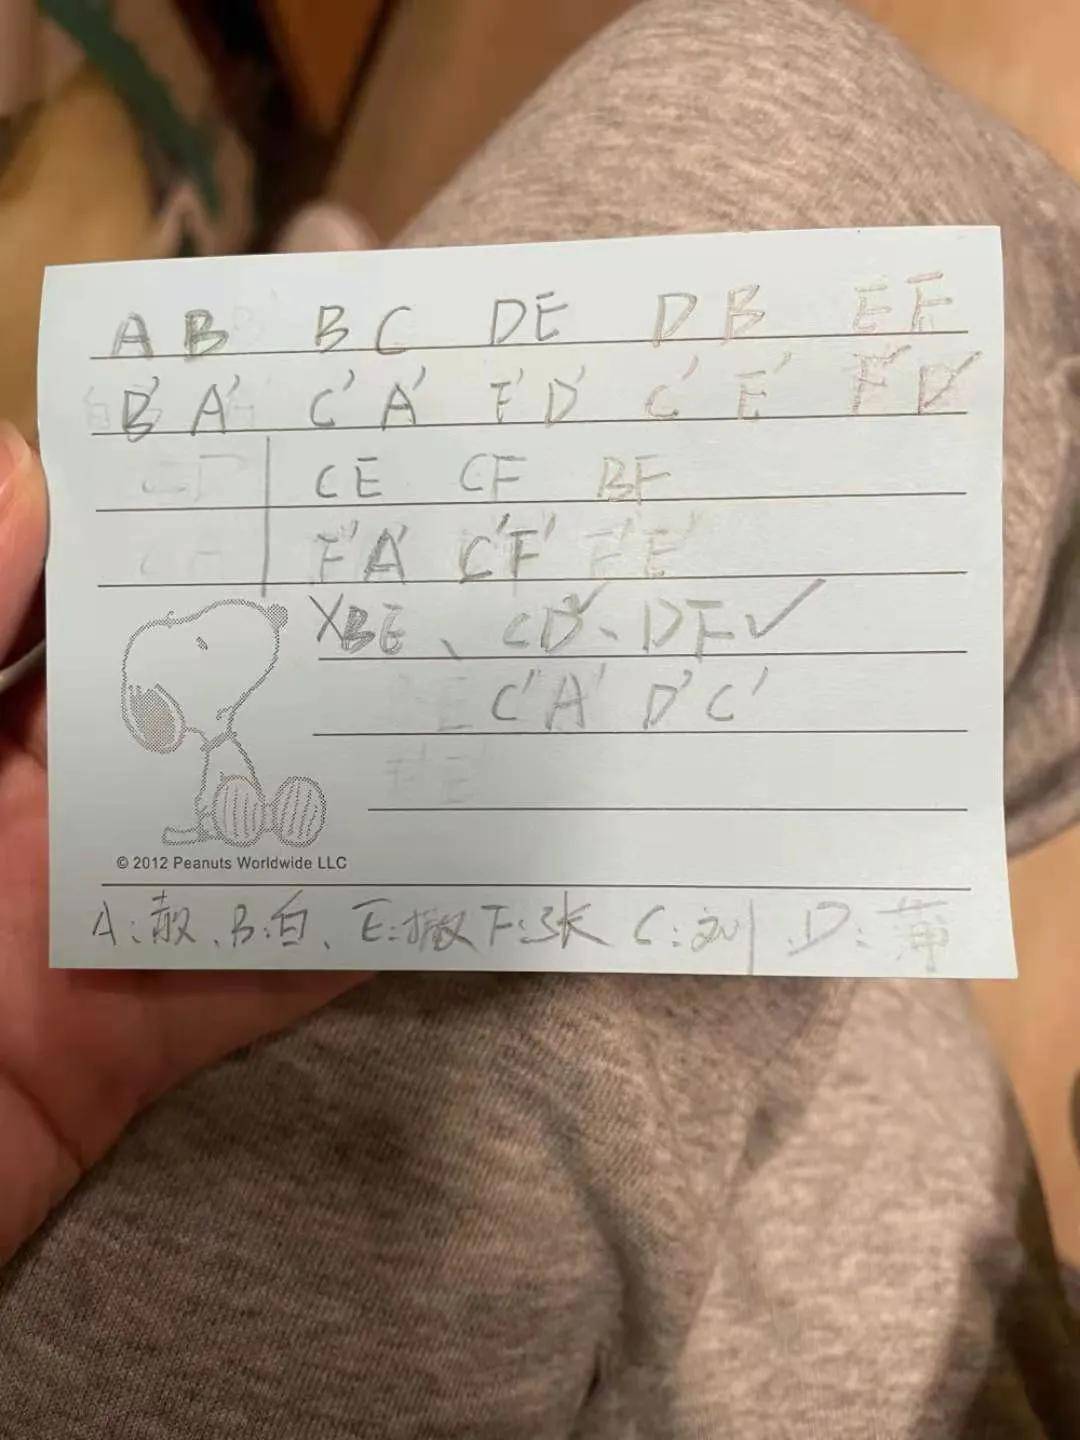 A B B C DE D B EF
B' A' C' A' F' D' C' E' F' D'
CE CF BF
F' A' C' F' F' E'
XBE、CD✓、DF✓
C' A' D' C'
© 2012 Peanuts Worldwide LLC
A:散、B:白、E:撒 F:张 C:刘 D:蒲